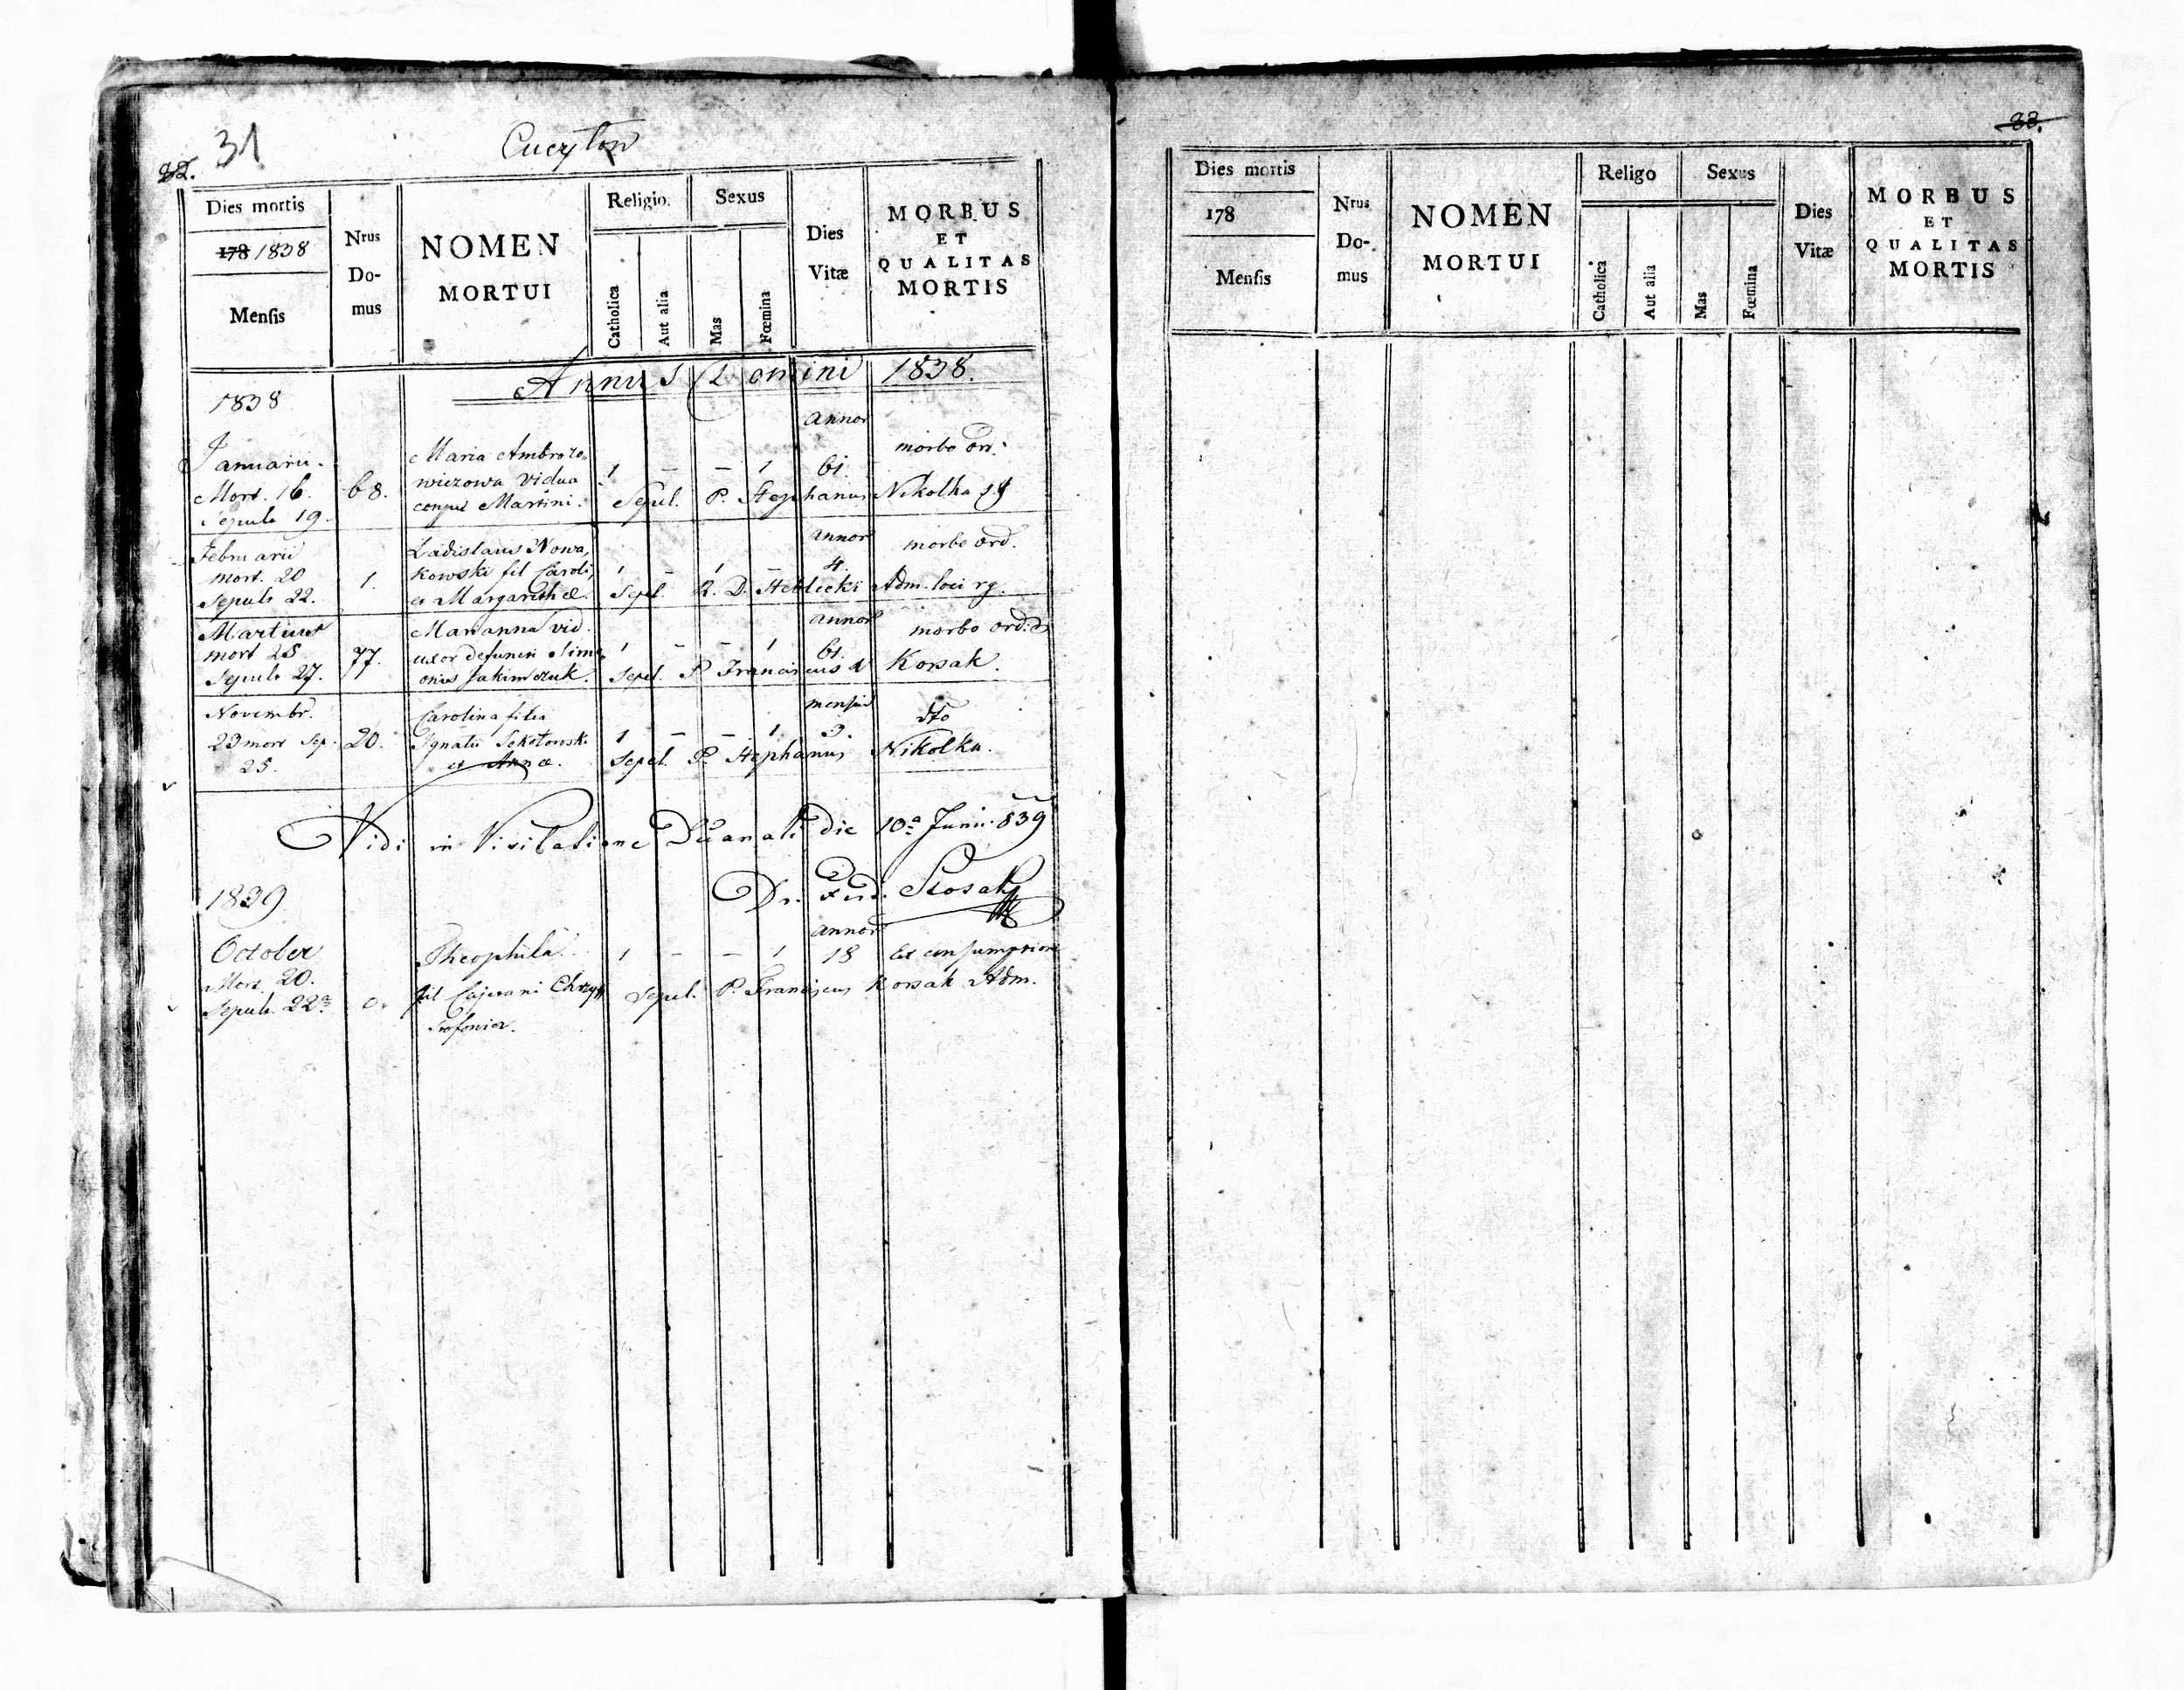 82. 31
Cucylow
Dies mortis
178 1838
Mensis
Nrus
Do-
mus
NOMEN
MORTUI
Religio.
Catholica
Aut alia
Sexus
Mas
Fœmina
Dies
Vitæ
MORBUS
ET
QUALITAS
MORTIS
Annus Domini 1838.
1838
Januarii.
Mort. 16.
Sepult. 19.
68.
Maria Ambrozo-
wiczowa vidua
conjux Martini.
1 – – 1
annor
61.
morbo ord.
Sepel. P. Stephanus Nikolka
Februarii
mort. 20
Sepult. 22.
1.
Ladislaus Nowa,
kowski fil Caroli,
et Margarethæ.
1 – 1 –
annor
4.
morbo ord.
Sepel. R. D. Adm. loci
Martius
mort 25
Sepult. 27.
77.
Marianna vid.
uxor defuncti Sime
onis Jakimczuk.
1 – – 1
annor
61.
morbo ord:
Sepel. P Franciscus Korsak.
Novembr.
23 mort Sep.
25.
20.
Carolina filia
Ignatii Sokołowski
et Annæ.
1 – – 1
mensiu
3.
dto
Sepel. P. Stephanus Nikolka.
Vidi in Visitatione Decanali die 10a Junii 839
1839
October
Mort. 20.
Sepult. 22a
0.
Theophila
fil Cajetani
1 – – 1
annor
18
Ex consumptione
Sepel. P. Franciscus Korsak Adm.
88.
Dies mortis
178
Mensis
Nrus
Do-
mus
NOMEN
MORTUI
Religo
Catholica
Aut alia
Sexus
Mas
Fœmina
Dies
Vitæ
MORBUS
ET
QUALITAS
MORTIS